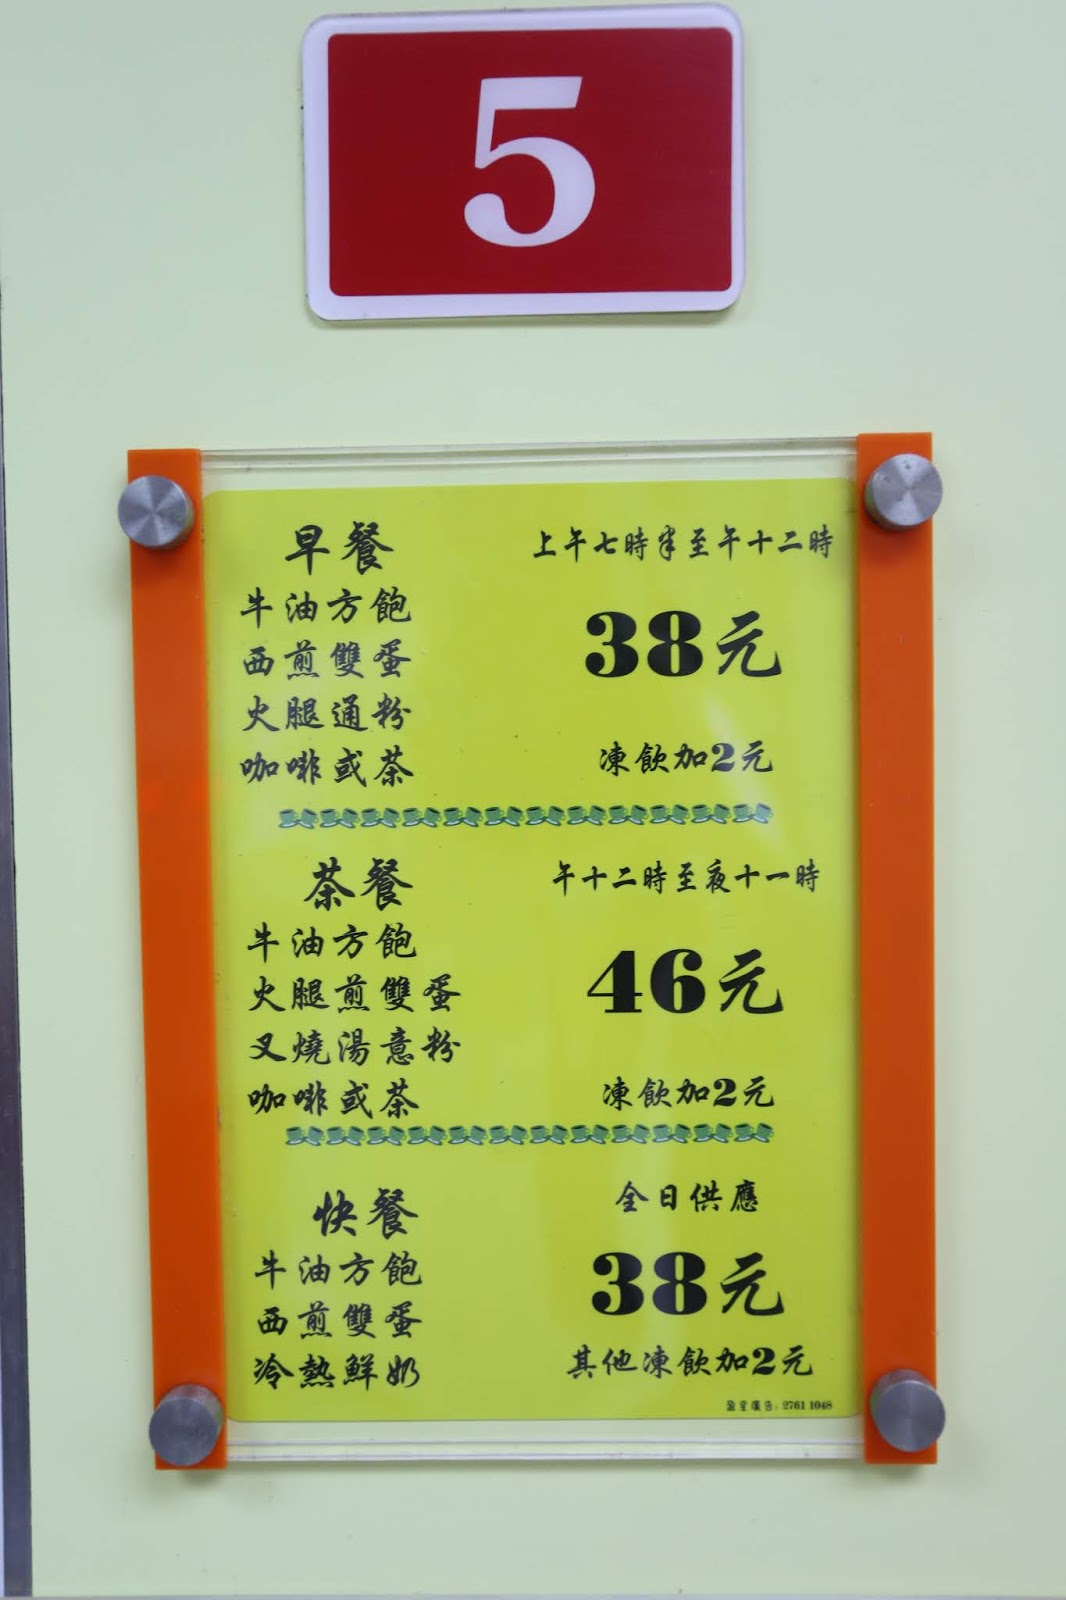 5
早餐
上午七時半至午十二時
牛油方飽
西煎雙蛋
火腿通粉
咖啡或茶
38元
凍飲加2元
茶餐
午十二時至夜十一時
牛油方飽
火腿煎雙蛋
叉燒湯意粉
咖啡或茶
46元
凍飲加2元
快餐
全日供應
牛油方飽
西煎雙蛋
冷熱鮮奶
38元
其他凍飲加2元
盈星廣告：2761 1048